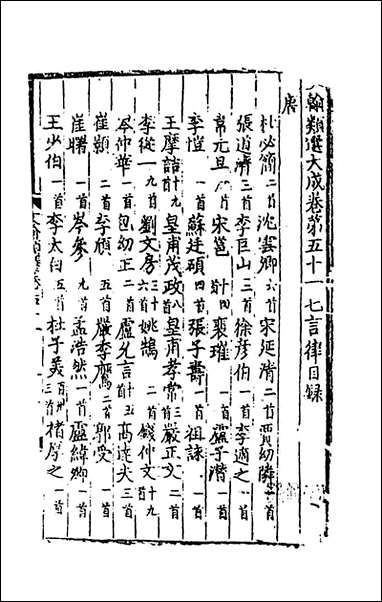 翰類選大成卷第五十一 七言律目録
唐
杜必簡二首沈雲卿六首宋延清二首賈幼隣一首
張道濟三首李巨山三首徐彦伯一首李適之一首
韋元旦一首宋邕十四首裴璀一首盧子潛一首
李憕一首蘇廷碩四首張子壽一首祖詠一首
王摩詰十九首皇甫茂政八首皇甫孝常三首嚴正文二首
李從一九首劉文房三十六首姚鵠二首錢仲文十九首
岑仲華一首包幼正二首盧允言十五首高達夫三首
崔顥二首李頎五首嚴季鷹二首郭受一首
崔曙一首岑參九首孟浩然一首盧緯卿一首
王少伯一首李太白五首杜子美 首褚厚之一首